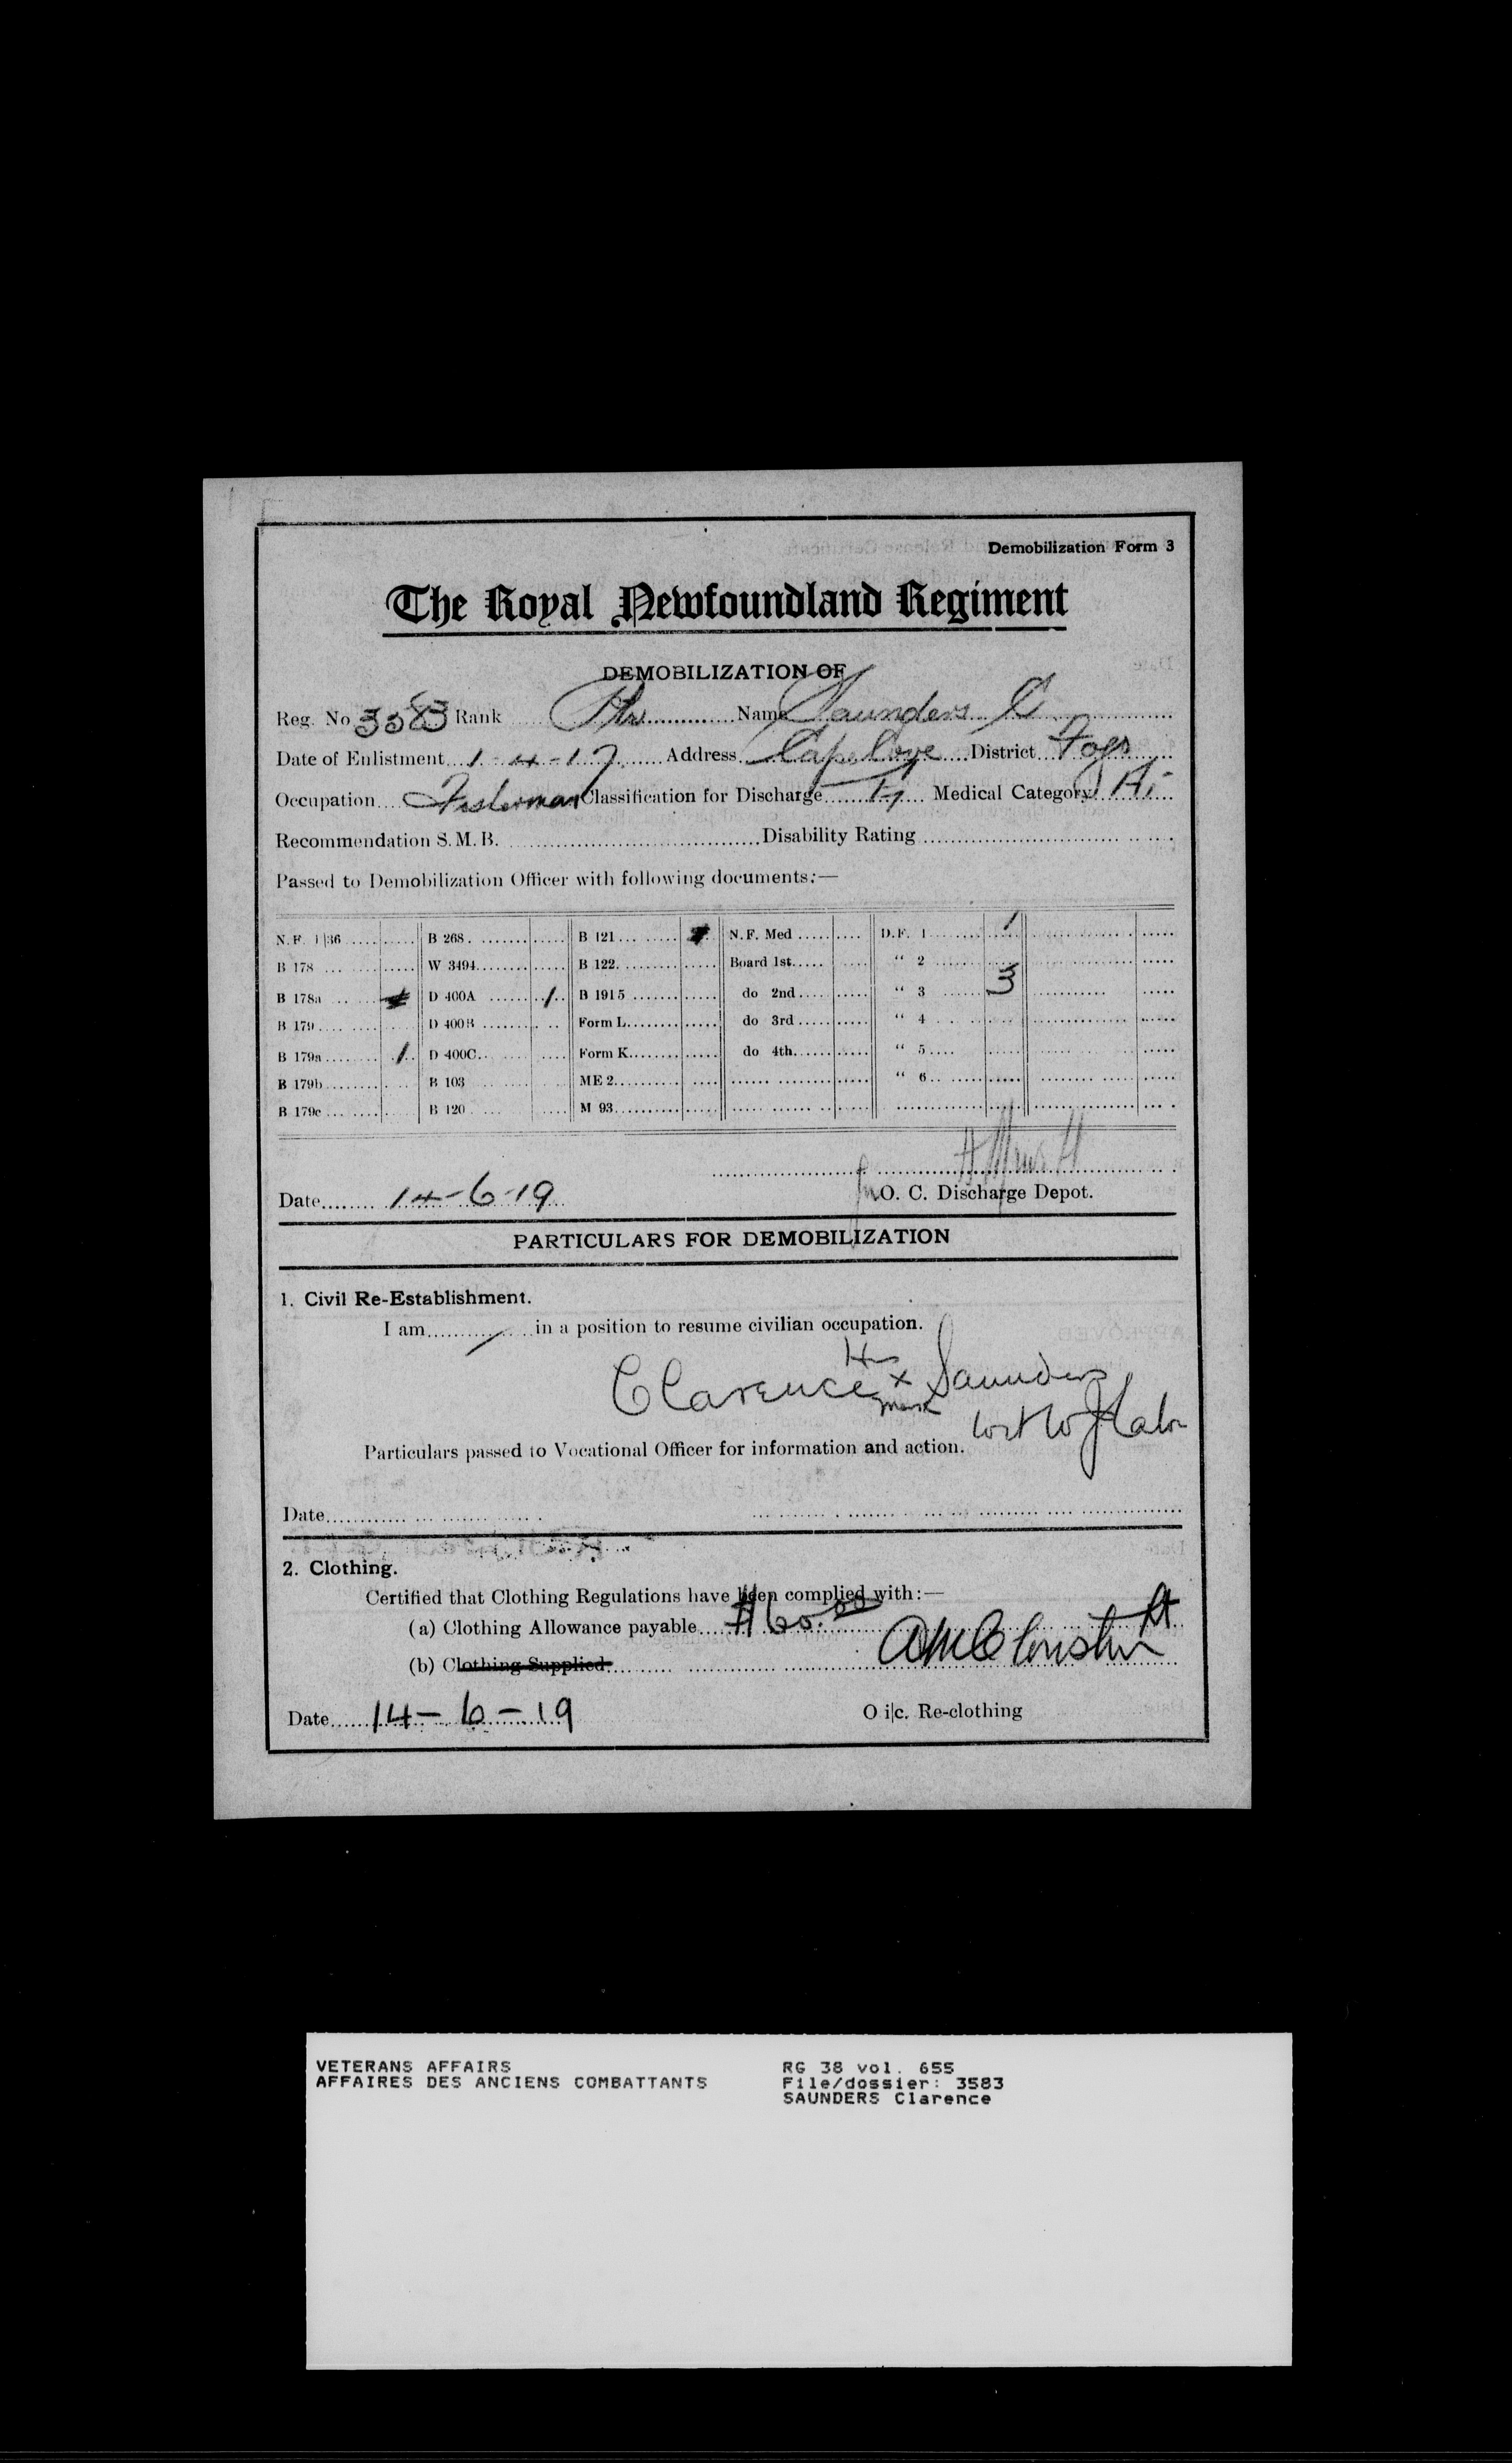 Demobilization Form 3
The Royal Newfoundland Regiment
DEMOBILIZATION OF
Reg. No 3583 Rank Pte Name Saunders C
Date of Enlistment 1-4-17 Address Cape Cove District Fogo
Occupation Fisherman Classification for Discharge Medical Category Ai
Recommendation S. M. B. Disability Rating
Passed to Demobilization Officer with following documents:—
N.F. 1|36 B 268 B 121 N.F. Med D.F. 1 1
B 178 W 3494 B 122 Board 1st “ 2
B 178a D 400A 1 B 1915 do 2nd “ 3 3
B 179 D 400B Form L do 3rd “ 4
B 179a 1 D 400C Form K do 4th “ 5
B 179b B 103 ME 2 “ 6
B 179c B 120 M 93
Date 14-6-19 for O. C. Discharge Depot.
PARTICULARS FOR DEMOBILIZATION
1. Civil Re-Establishment.
I am in a position to resume civilian occupation.
His
Clarence x Saunders
mark
Particulars passed to Vocational Officer for information and action.
Date
2. Clothing.
Certified that Clothing Regulations have been complied with:—
(a) Clothing Allowance payable $60.00
(b) Clothing Supplied
Date 14-6-19 O i|c. Re-clothing
VETERANS AFFAIRS RG 38 vol. 655
AFFAIRES DES ANCIENS COMBATTANTS File/dossier: 3583
SAUNDERS Clarence